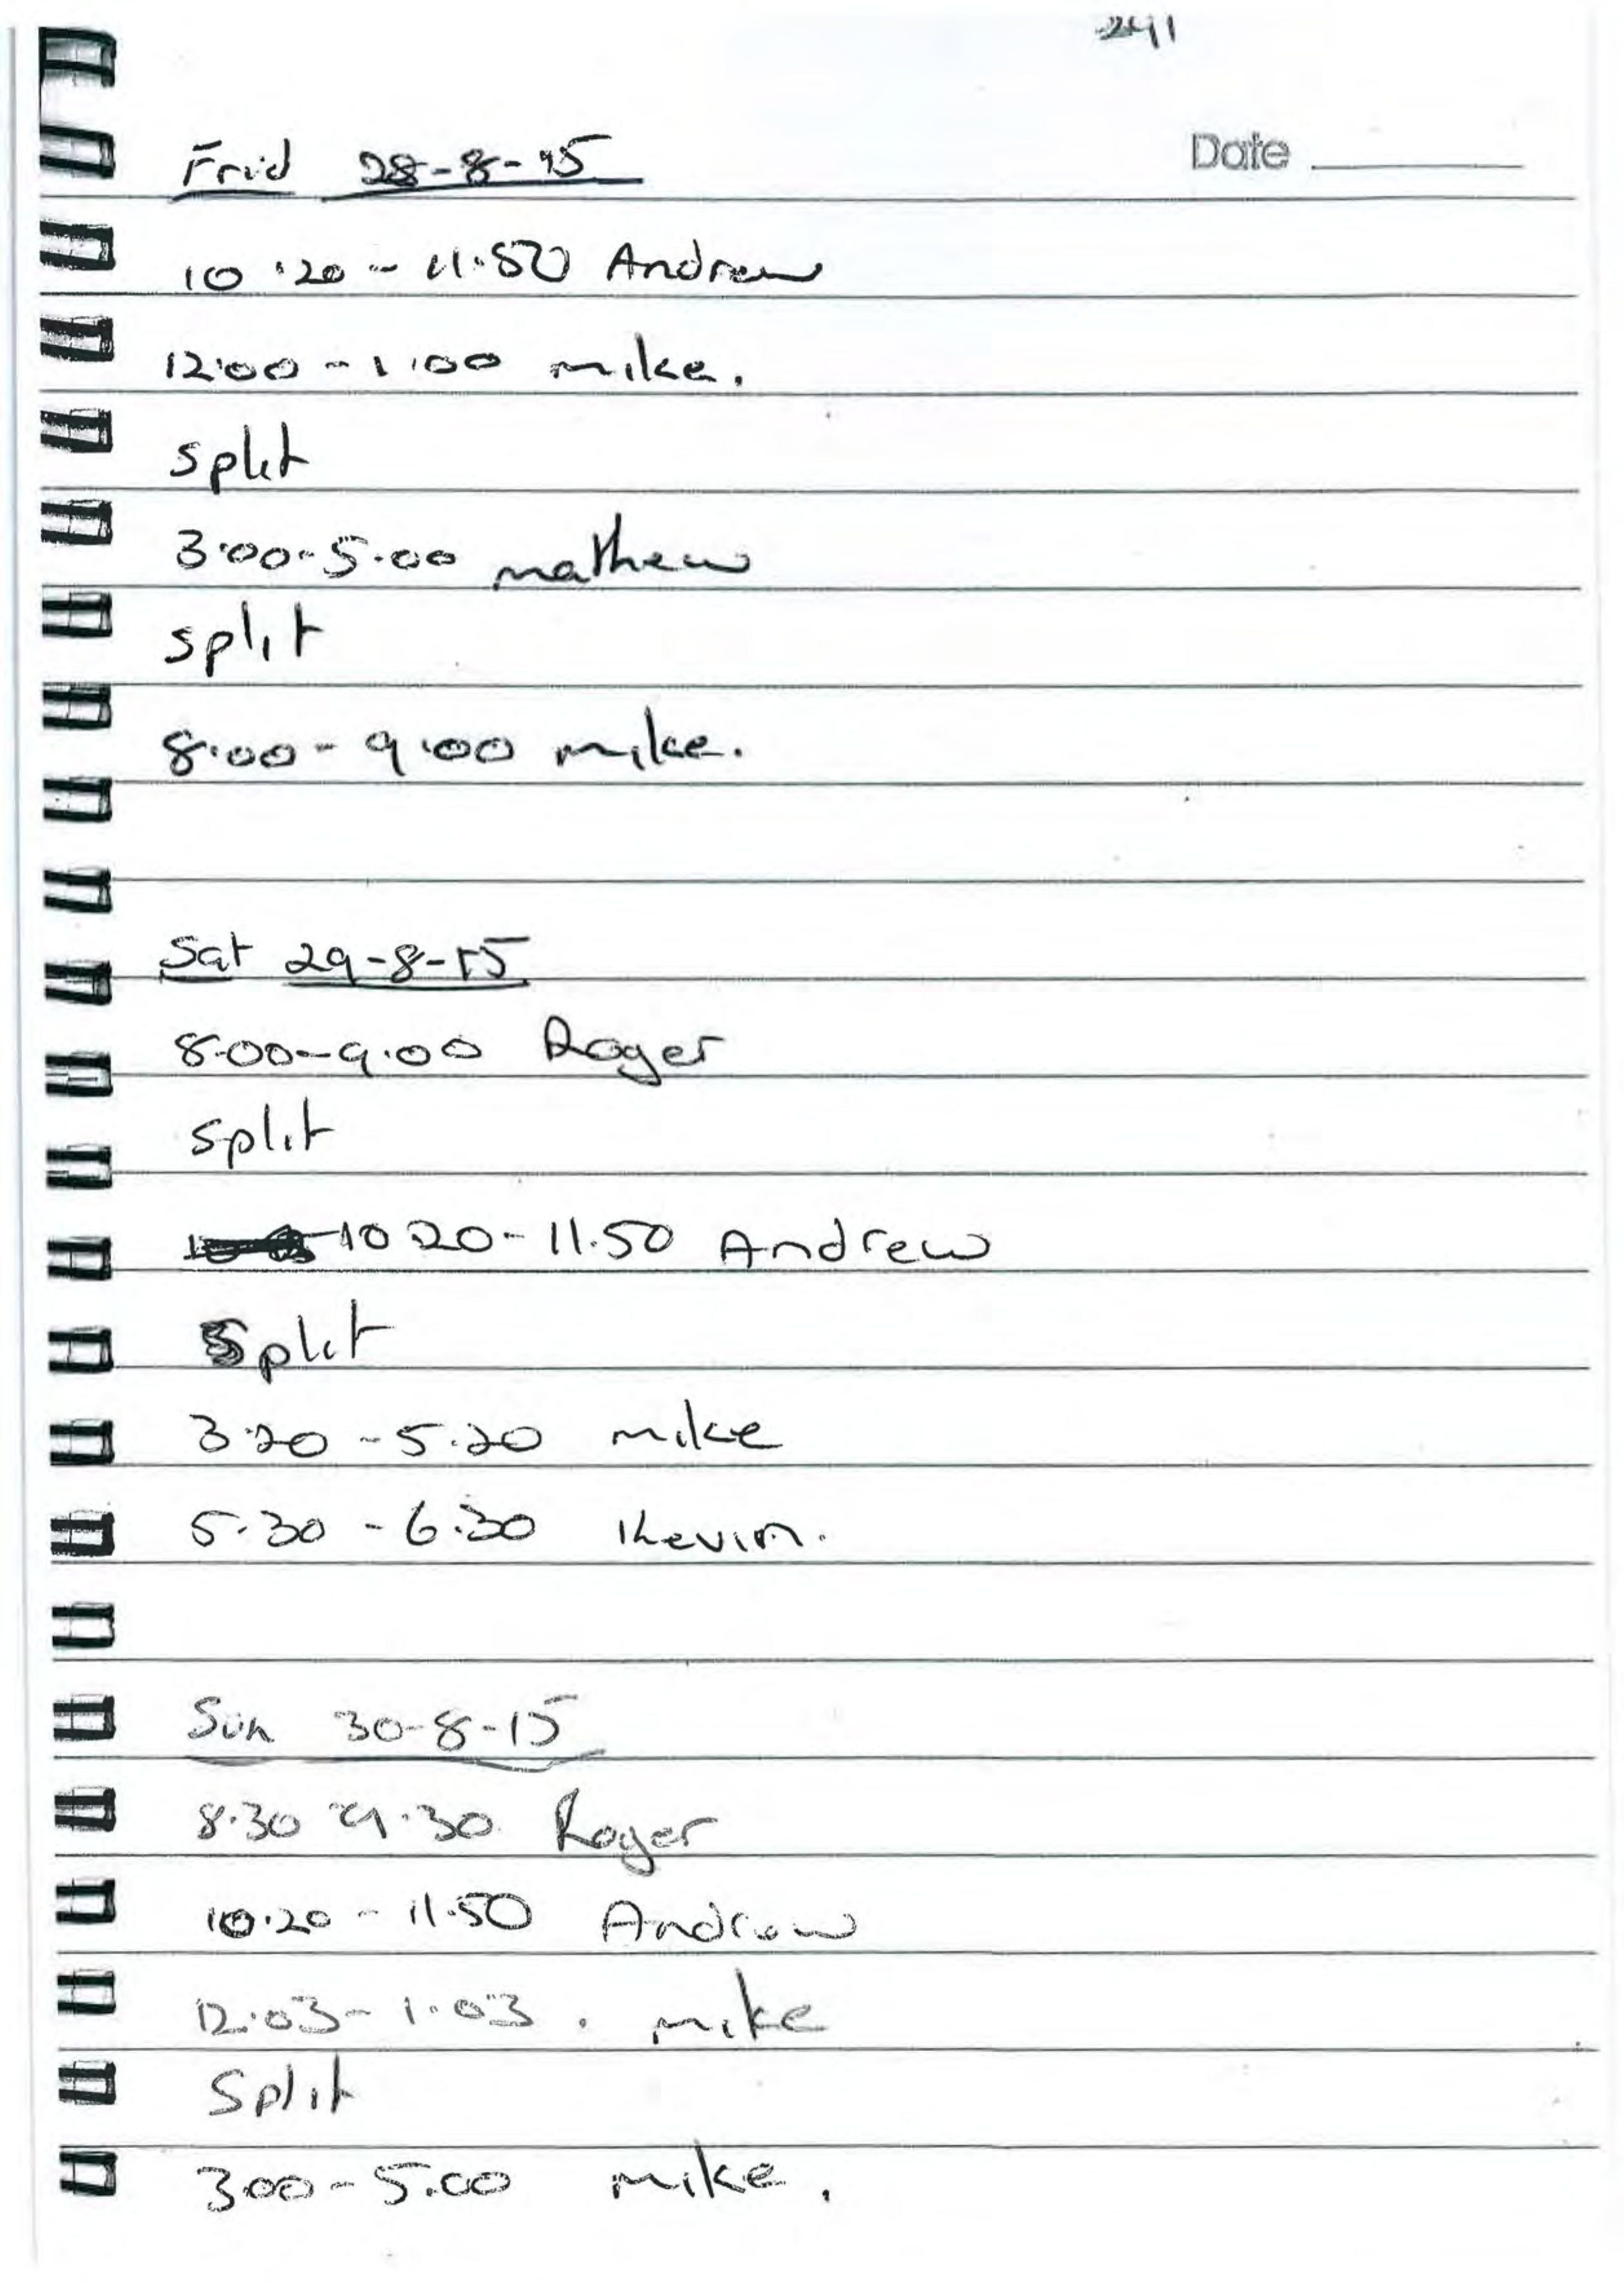 241
Date
Frid 28-8-15
10.20 - 11.50 Andrew
12:00 - 1:00 mike.
split
3:00 - 5.00 mathew
split
8:00 - 9:00 mike.
Sat 29-8-15
8.00 - 9.00 Roger
split
10 20 - 11.50 Andrew
Split
3.20 - 5.20 mike
5.30 - 6.30 Kevin.
Sun 30-8-15
8.30 - 9.30 Roger
10.20 - 11.50 Andrew
12.03 - 1.03 . mike
Split
3.00 - 5.00 mike.